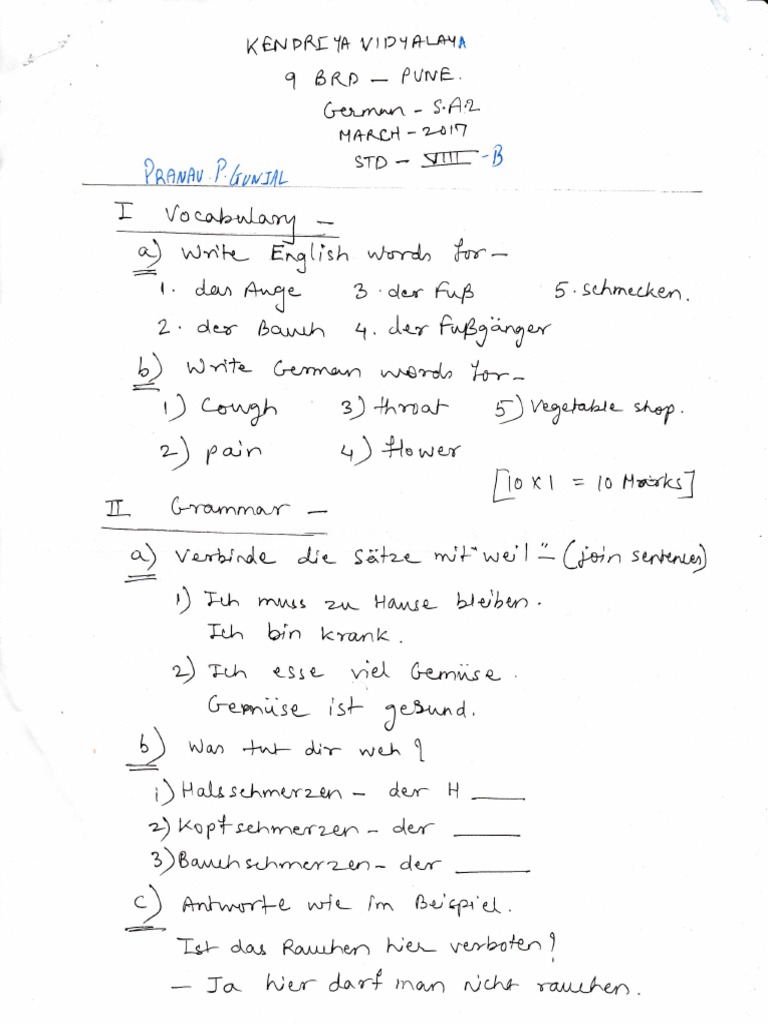 KENDRIYA VIDYALAYA
9 BRD – PUNE.
German - S.A.2
MARCH - 2017
STD - VIII - B
PRANAV. P. GUNJAL
I Vocabulary –
a) Write English words for –
1. das Auge 3. der Fuß 5. schmecken.
2. der Bauch 4. der Fußgänger
b) Write German words for –
1) Cough 3) throat 5) Vegetable shop.
2) pain 4) flower
[10 x 1 = 10 Marks]
II Grammar –
a) Verbinde die Sätze mit "weil" – (join sentences)
1) Ich muss zu Hause bleiben.
Ich bin krank.
2) Ich esse viel Gemüse.
Gemüse ist gesund.
b) Was tut dir weh?
1) Halsschmerzen – der H ____
2) Kopfschmerzen – der ____
3) Bauchschmerzen – der ____
c) Antworte wie im Beispiel.
Ist das Rauchen hier verboten?
– Ja hier darf man nicht rauchen.